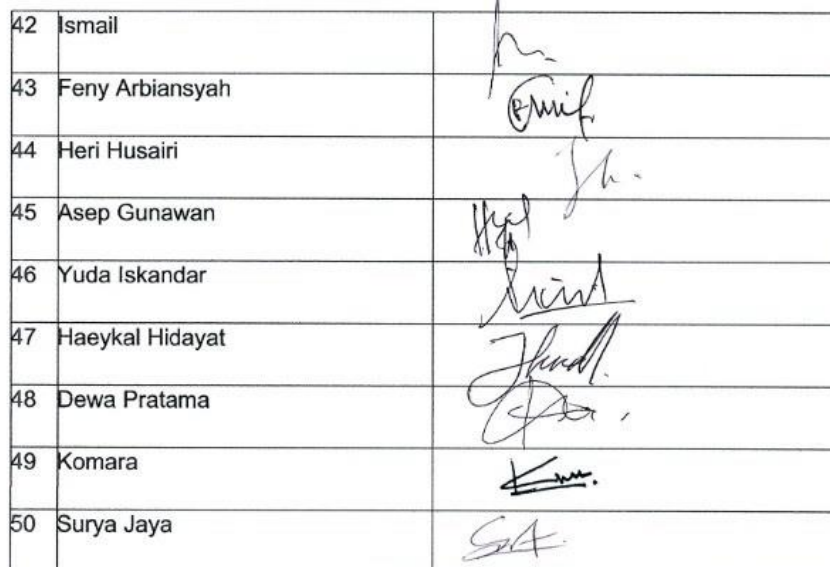 42 Ismail
43 Feny Arbiansyah
44 Heri Husairi
45 Asep Gunawan
46 Yuda Iskandar
47 Haeykal Hidayat
48 Dewa Pratama
49 Komara
50 Surya Jaya